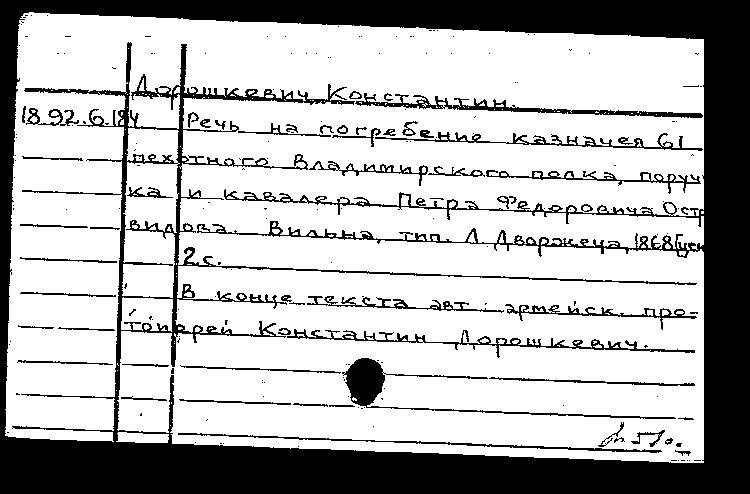 Дорошкевич, Константин.
18.92.6.184 Речь на погребение казначея 61
пехотного Владимирского полка, поруч
ка и кавалера Петра Федоровича Остр
видова. Вильна, тип. Л. Дворжеца, 1868 [цен
2 с.
В конце текста авт.: армейск. про-
тоиерей Константин Дорошкевич.